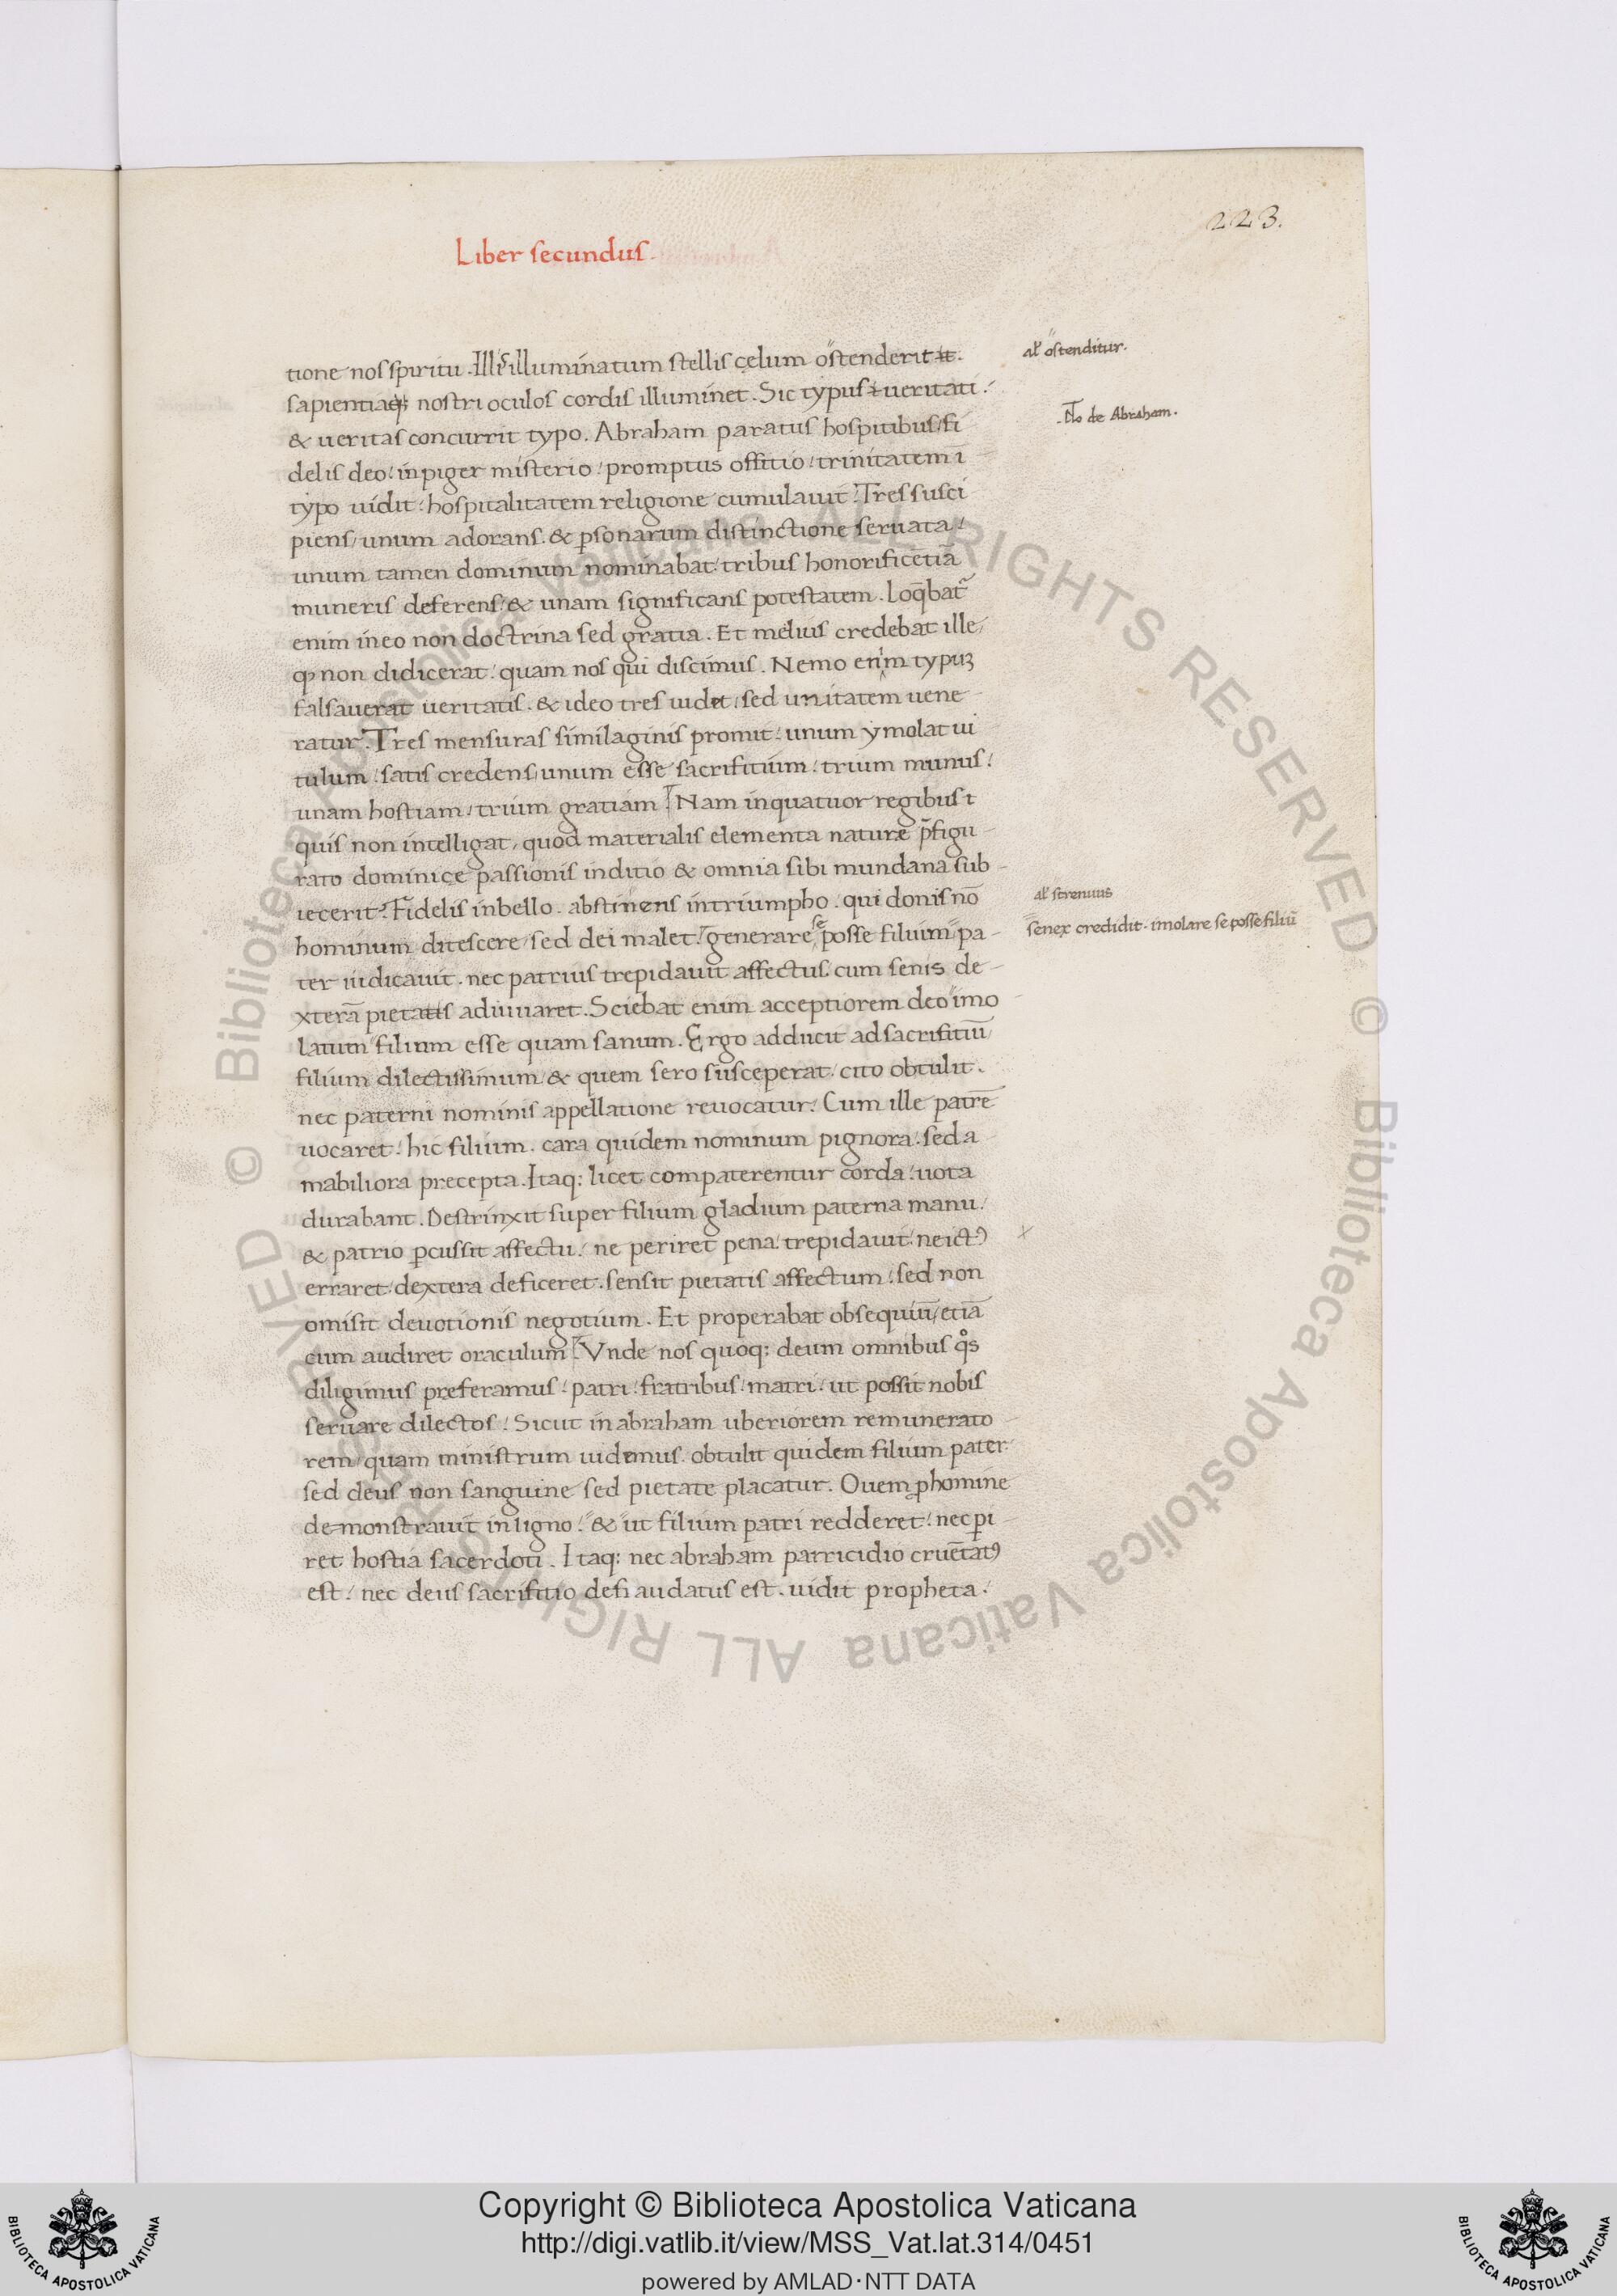 223.
Liber secundus.
tione nos spiritu. Illis illuminatum stellis cęlum ostenderit
al' ostenditur.
sapientiaq; nostri oculos cordis illuminet. Sic typus veritati.
& veritas concurrit typo. Abraham paratus hospitibus, fi
No de Abraham.
delis deo, inpiger misterio, promptus offitio, trinitatem ī
typo vidit, hospitalitatem religione cumulavit. Tres susci
piens, unum adorans. & ꝑsonarum distinctione servata,
unum tamen dominum nominabat, tribus honorificētiā
muneris deferens, & unam significans potestatem. Loq̄bat᷑
enim in eo non doctrina sed gratia. Et melius credebat ille,
qͥ non didicerat, quam nos qui discimus. Nemo enim typuʒ
falsaverat veritatis. & ideo tres videt, sed unitatem vene
ratur. Tres mensuras similaginis promit, unum ymolat vi
tulum, satis credens, unum esse sacrifitium, trium munus,
unam hostiam, trium gratiam. Nam in quatuor regibus
quis non intelligat, quod materialis elementa naturæ p̄figu
rato dominicę passionis inditio & omnia sibi mundana sub
iecerit. Fidelis in bello. abstinens in triumpho. qui donis nō
al' strenuus
hominum ditescere, sed dei malet. generare sē posse filium pa
senex credidit. imolare se posse filiū
ter iudicavit. nec patrius trepidavit affectus. cum senis de
xterā pietatis adiuvaret. Sciebat enim acceptiorem deo imo
latum filium esse quam sanum. Ergo adducit ad sacrifitiū
filium dilectissimum, & quem sero susceperat, cito obtulit.
nec paterni nominis appellatione revocatur. Cum ille patrē
vocaret, hic filium. cara quidem nominum pignora, sed a
mabiliora precepta. Itaq: licet compaterentur corda, vota
durabant. Destrinxit super filium gladium paterna manu,
& patrio ꝑcussit affectu, ne periret pena, trepidavit, ne ictꝰ
erraret, dextera deficeret. sensit pietatis affectum, sed non
omisit devotionis negotium. Et properabat obsequiū, etiā
cum audiret oraculum. Unde nos quoq: deum omnibus q̊s
diligimus præferamus, patri, fratribus, matri, ut possit nobis
servare dilectos. Sicut in abraham uberiorem remunerato
rem, quam ministrum videmus. obtulit quidem filium pater.
sed deus non sanguine sed pietate placatur. Ovem ꝓ homine
demonstravit in ligno, & ut filium patri redderet, nec ꝑi
ret hostia sacerdoti. Itaq: nec abraham parricidio cruētatꝰ
est, nec deus sacrifitio defraudatus est. vidit propheta.
© Biblioteca Apostolica Vaticana ALL RIGHTS RESERVED © Biblioteca Apostolica Vaticana ALL RIGHTS RESERVED
Copyright © Biblioteca Apostolica Vaticana
http://digi.vatlib.it/view/MSS_Vat.lat.314/0451
powered by AMLAD·NTT DATA
BIBLIOTECA APOSTOLICA VATICANA
BIBLIOTECA APOSTOLICA VATICANA